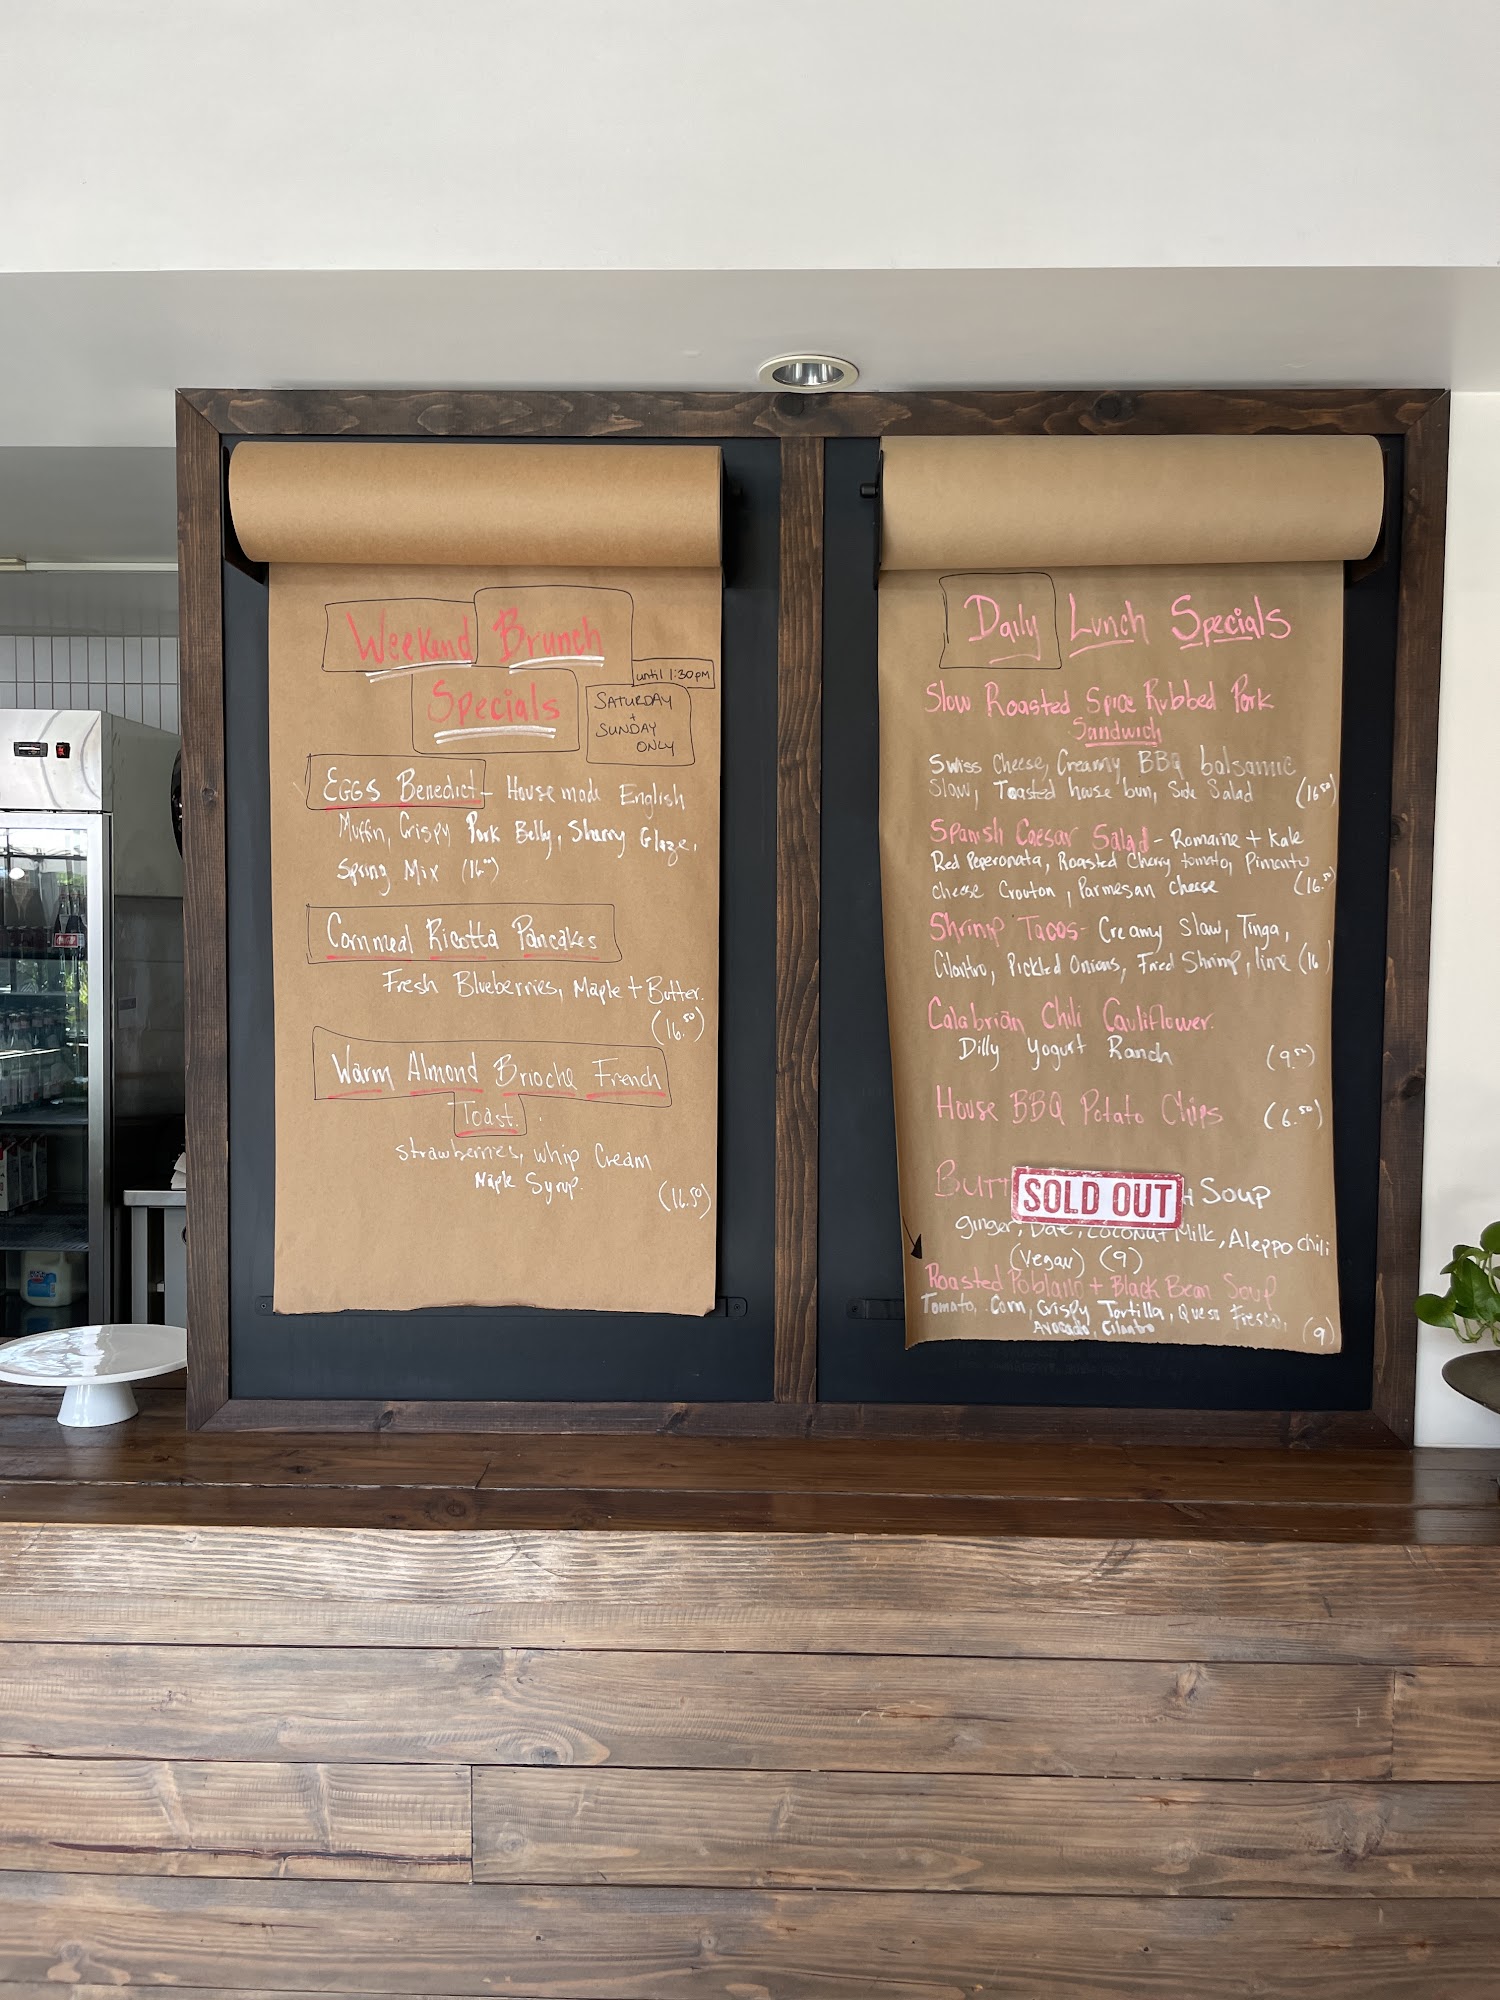 Weekend Brunch
until 1:30pm
Specials
SATURDAY
+
SUNDAY
ONLY
EGGS Benedict - House made English
Muffin, Crispy Pork Belly, Sherry Glaze,
Spring Mix (16.50)
Cornmeal Ricotta Pancakes
Fresh Blueberries, Maple + Butter.
(16.50)
Warm Almond Brioche French
Toast.
strawberries, whip Cream
Maple Syrup.
(16.50)
Daily Lunch Specials
Slow Roasted Spice Rubbed Pork
Sandwich
Swiss Cheese, Creamy BBQ balsamic
Slaw, Toasted house bun, Side Salad (16.50)
Spanish Caesar Salad - Romaine + Kale
Red Peperonata, Roasted Cherry tomato, Pimento
Cheese Crouton, Parmesan cheese (16.50)
Shrimp Tacos - Creamy Slaw, Tinga,
Cilantro, Pickled Onions, Fried Shrimp, lime (16)
Calabrian Chili Cauliflower.
Dilly Yogurt Ranch (9.50)
House BBQ Potato Chips (6.50)
SOLD OUT Soup
ginger, Date, Coconut Milk, Aleppo chili
(Vegan) (9)
Roasted Poblano + Black Bean Soup
Tomato, Corn, Crispy Tortilla, Queso Fresco,
Avocado, Cilantro (9)